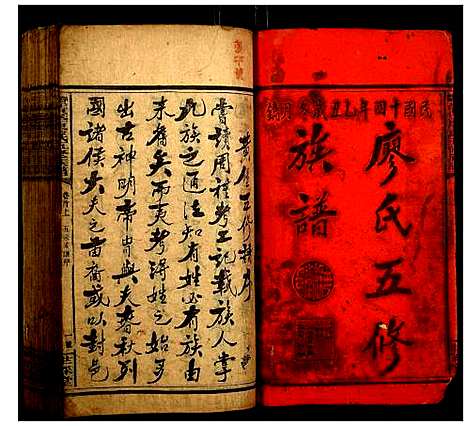 民國十四年乙丑歲冬月鐫
廖氏五修
族譜
五修族譜序
嘗讀周禮考工記載族人掌
此族之通注知有姓必有族由
來舊矣而夷考得姓之始多
出古神明帝冑與夫春秋列
國諸侯大夫之苗裔或以封邑
卷首上